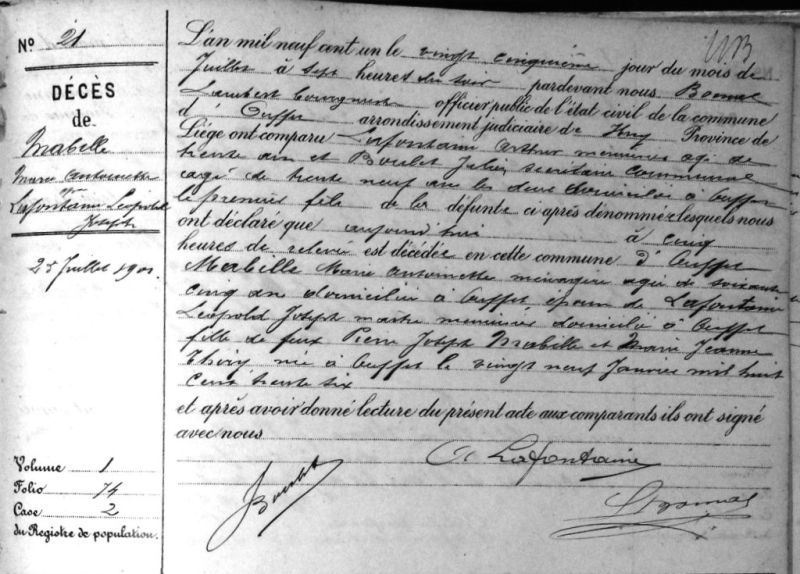 N° 21
DÉCÈS
de
Mabelle
Marie Antoinette
épx
Lafontaine Léopold
Joseph
25 Juillet 1901
Volume 1
Folio 74
Case 2
du Registre de population.
L'an mil neuf cent un le vingt cinquième jour du mois de
Juillet à sept heures du soir pardevant nous
Lambert officier public de l'état civil de la commune
d' Ouffet arrondissement judiciaire de Huy Province de
Liége ont comparu Lafontaine Arthur menuisier agé de
trente ans et Boulet Jules secrétaire communal
agé de trente neuf ans les deux domiciliés à Ouffet
le premier fils de la défunte ci après dénommée lesquels nous
ont déclaré que aujourd'hui à cinq
heures de relevée est décédée en cette commune d'Ouffet
Mabille Marie Antoinette ménagère agée de soixante
cinq ans domiciliée à Ouffet épouse de Lafontaine
Léopold Joseph maître menuisier domicilié à Ouffet
fille de feux Pierre Joseph Mabille et Marie Jeanne
Thiry née à Ouffet le vingt neuf Janvier mil huit
cent trente six
et après avoir donné lecture du présent acte aux comparants ils ont signé
avec nous
A Lafontaine
J Boulet